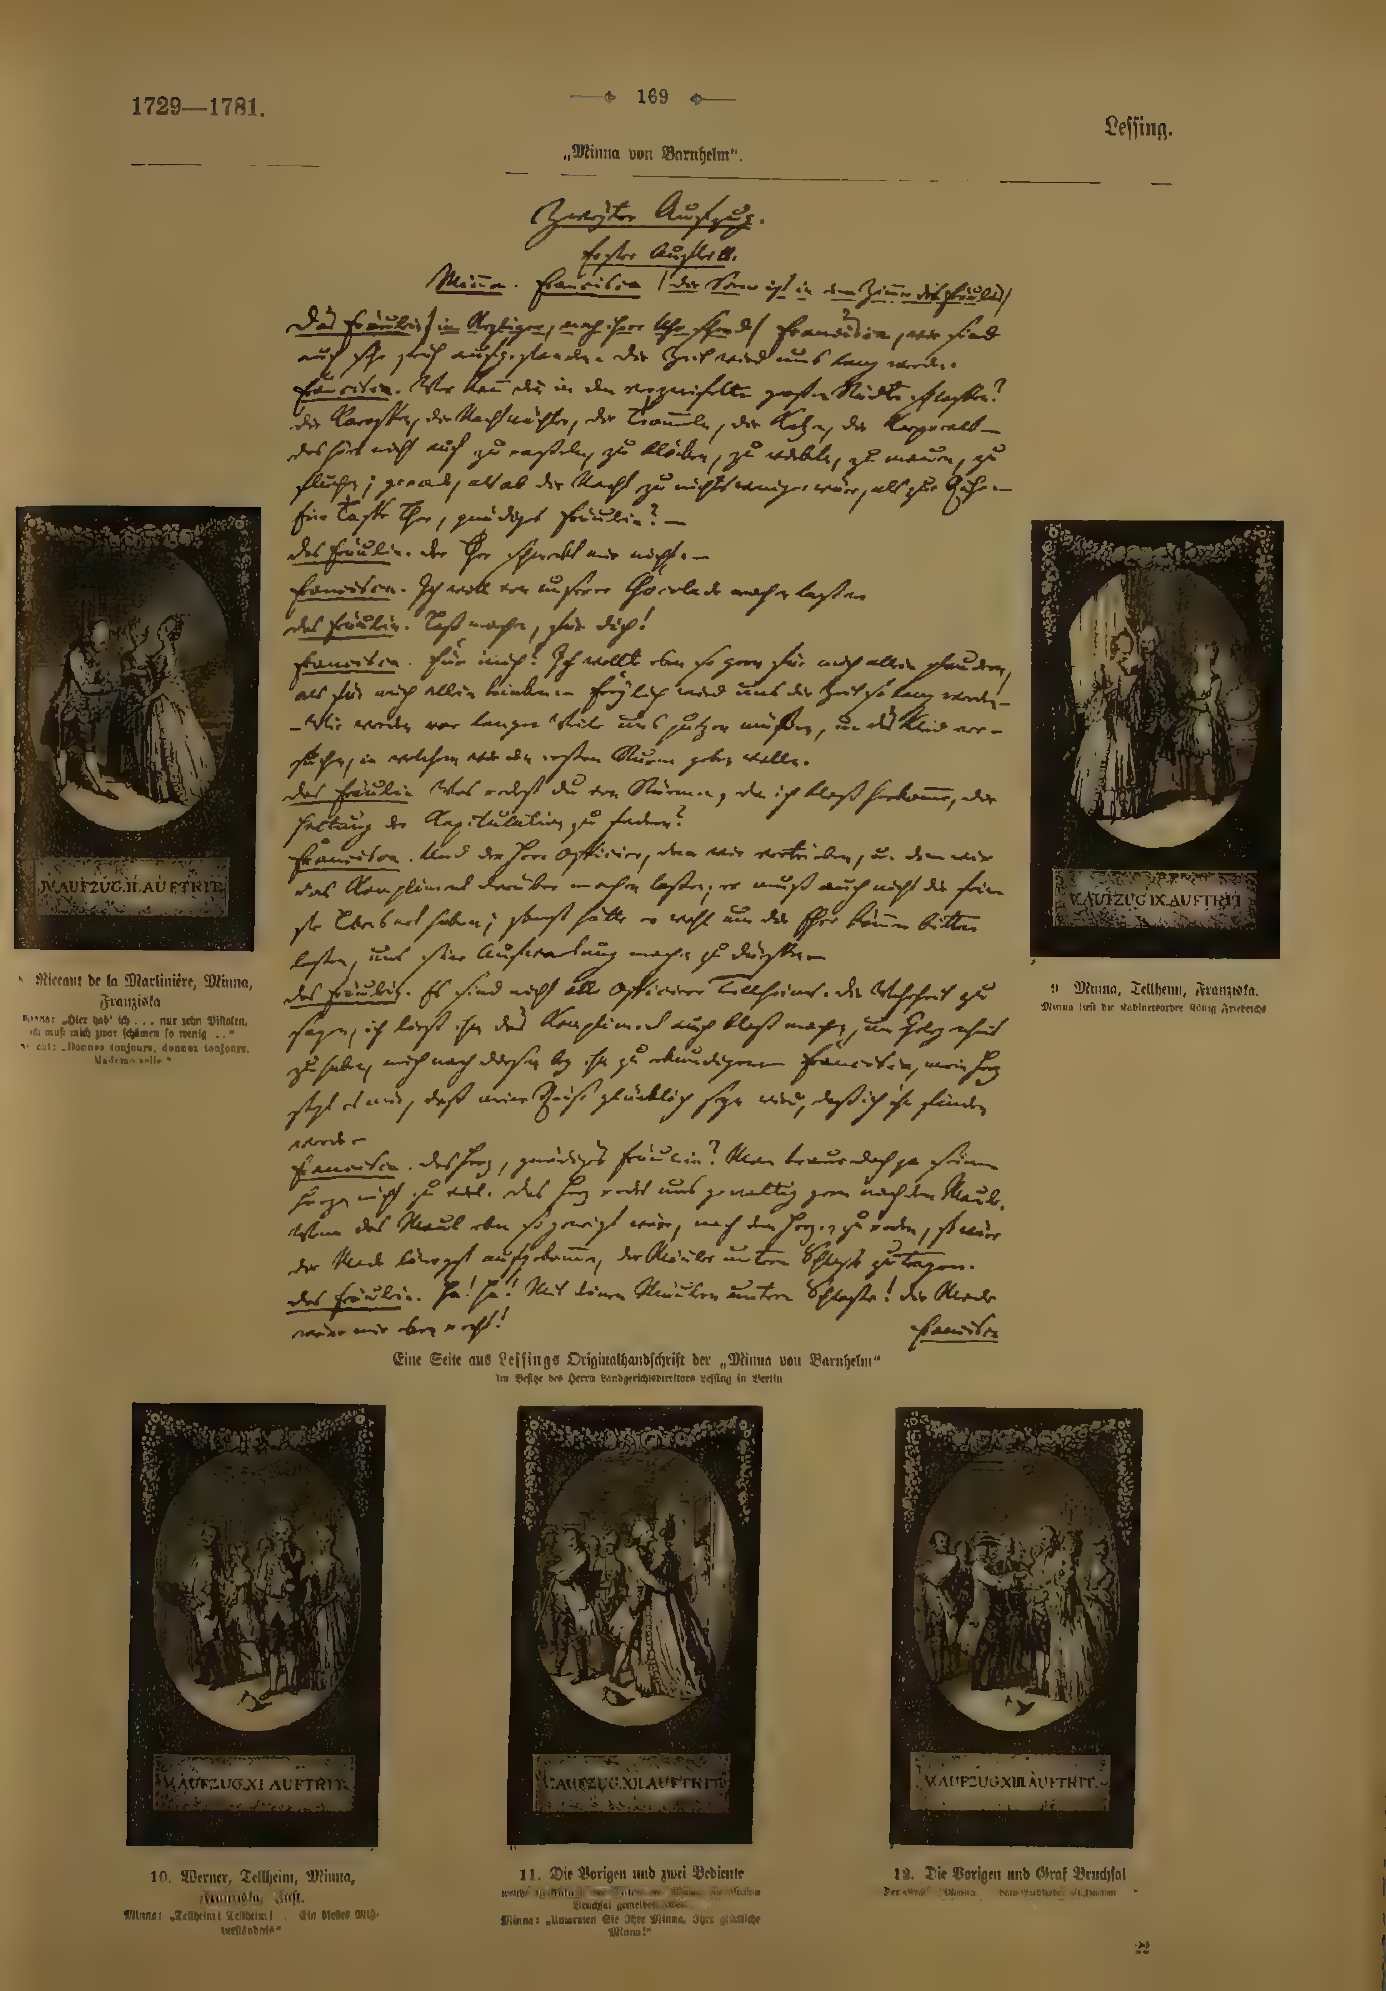 1729—1781.
169
Lessing.
„Minna von Barnhelm“.
Zweyter Aufzug.
Erster Auftritt.
Minna. Francisca. (die Scene ist in dem Zimmer des Fräuleins)
Das Fräulein (im Negligee, nach ihrer Uhr sehend) Francisca, wir sind
auch sehr früh aufgestanden. Die Zeit wird uns lang werden.
Francisca. Wer kann denn in den verzweifelten großen Städten schlafen?
die Karossen, die Nachtwächter, die Trommeln, die Katzen, die Korporals —
das hört nicht auf zu rasseln, zu schreyen, zu wirbeln, zu mauen, zu
fluchen; gerade, als ob die Nacht zu nichts weniger wäre, als zur Ruhe. —
Eine Tasse Thee, gnädiges Fräulein? —
das Fräulein. der Thee schmeckt mir nicht. —
Francisca. Ich will von unserer Chocolade machen lassen
das Fräulein. Laß machen, für dich!
Francisca. Für mich? Ich wollte eben so gern für mich allein plaudern,
als für mich allein trinken. — Freylich wird uns die Zeit so lang werden —
– Wir werden vor langer Weile uns putzen müssen, und das Kleid ver-
suchen, in welchem wir den ersten Sturm geben wollen.
das Fräulein. Was redest du von Stürmen, da ich bloß herkomme, die
Haltung der Kapitulation zu fodern?
Francisca. Und der Herr Officier, den wir vertrieben, u. dem wir
das Kompliment darüber machen lassen; er muß auch nicht die fein-
ste Lebensart haben; sonst hätte er wohl um die Ehre können bitten
lassen, uns seine Aufwartung machen zu dürfen. —
das Fräulein. Es sind nicht alle Officiere Tellheims. die Wahrheit zu
sagen, ich ließ ihm das Kompliment auch bloß machen, um Gelegenheit
zu haben, mich nach diesem bey ihm zu erkundigen. — Francisca, mein Herz
sagt es mir, daß meine Reise glücklich seyn wird, daß ich ihn finden
werde. —
Francisca. das Herz, gnädiges Fräulein? Man traue doch ja seinem
Herzen nicht zu viel. Das Herz redet uns gewaltig gern nach dem Maule.
Wenn das Maul eben so geneigt wäre, nach dem Herzen zu reden, so wäre
die Mode längst aufgekommen, die Mäuler unterm Schlosse zu tragen.
das Fräulein. Ha! ha! Mit deinen Mäulern unterm Schlosse! die Mode
wäre mir eben recht!
Francisca
IV. AUFZUG. II. AUFTRIT.
V. AUFZUG IX. AUFTRIT
Riccaut de la Marlinière, Minna,
Franziska
Minna: „Hier hab' ich . . . nur zehn Pistolen,
ich muß mich zwar schämen so wenig . .“
Riccaut: „Donnez toujours, donnez toujours,
Mademoiselle.“
9. Minna, Tellheim, Franziska.
Minna liest die Kabinetsorder König Friedrichs
Eine Seite aus Lessings Originalhandschrift der „Minna von Barnhelm“
Im Besitze des Herrn Landgerichtsdirektors Lessing in Berlin
V. AUFZUG. XI AUFTRIT.
V. AUFZUG. XII. AUFTRIT
V. AUFZUG XIII. AUFTRIT.
10. Werner, Tellheim, Minna,
Franziska, Just.
Minna: „Tellheim! Tellheim! . Ein bloßes Miß-
verständnis“
11. Die Vorigen und zwei Bediente
Bruchsal gemeldet
Minna: „Umarmen Sie Ihre Minna, Ihre glückliche
Minna!“
12. Die Vorigen und Graf Bruchsal
22